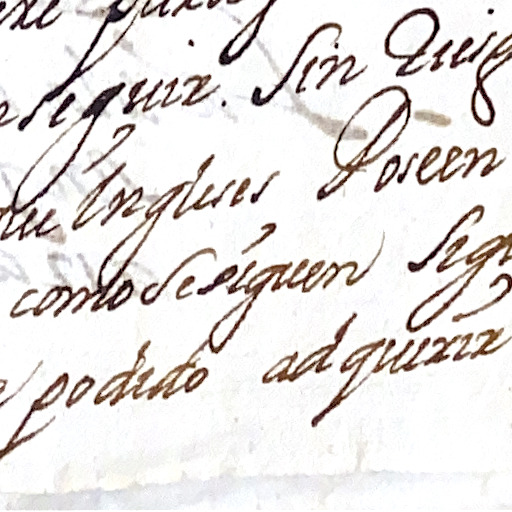 seguir. Sin
Ingleses Poseen
como se siguen Segu
podido adquirir